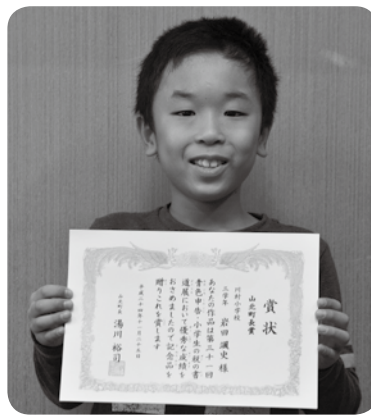 賞状
山北町長賞
川村小学校
三学年 岩田 颯史 様
あなたの作品は第三十一回
青色申告・小学生の税の書
道展において優秀な成績を
おさめましたので記念品を
贈りこれを賞します
平成二十四年十一月二十五日
山北町長 湯川 裕司